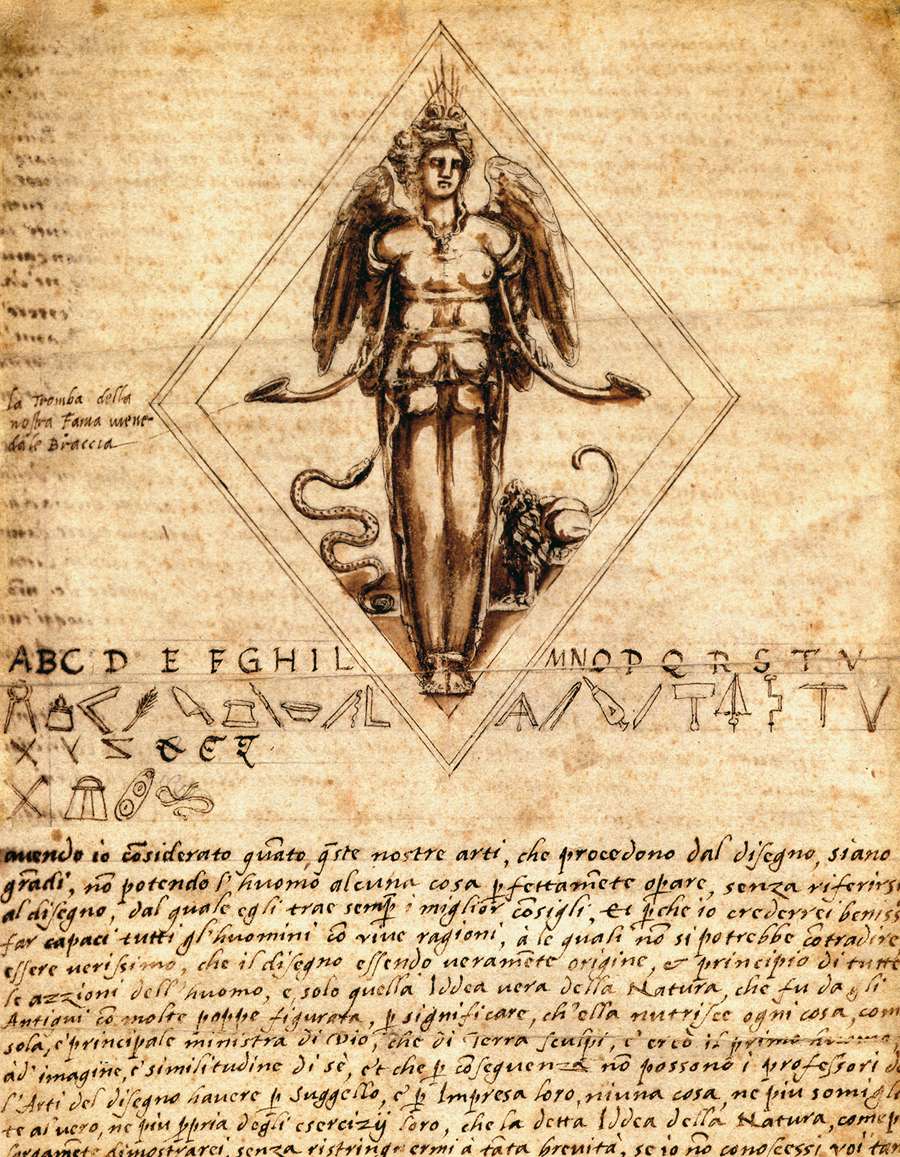 la Tromba della
nostra Fama viene
dale Braccia
A B C D E F G H I L M N O P Q R S T V
X Y Z & Є
avendo io cōsiderato quāto, q̄ste nostre arti, che procedono dal disegno, siano
grādi, nō potendo l'huomo alcuna cosa ꝑfettamēte oꝑare, senza riferirsi
al disegno, dal quale egli trae semꝑ i miglior cōsigli, Et ꝑche io crederrei beniss
far capaci tutti gl'huomini cō vive ragioni, à le quali nō si potrebbe cōtradire
essere verissimo, che il disegno essendo veramēte origine, & principio di tutte
le azzioni dell'huomo, e, solo quella Iddea vera della Natura, che fu da gli
Antiqui cō molte poppe figurata, ꝑ significare, ch'ella nutrisce ogni cosa, com
sola, e principale ministra di Dio, che di Terra sculpì, e creò il primo huomo,
ad' imagine, e similitudine di sè, et che ꝑ cōseguenza nō possono i professori de
l'Arti del disegno havere ꝑ Suggello, e ꝑ Impresa loro, niuna cosa, ne più somigliā
te al vero, ne più ꝓpria degli esercizij loro, che la detta Iddea della Natura, come ꝑ
largamēte dimostrarei, senza ristringermi à tāta brevità, se io nō conoscessi voi tan